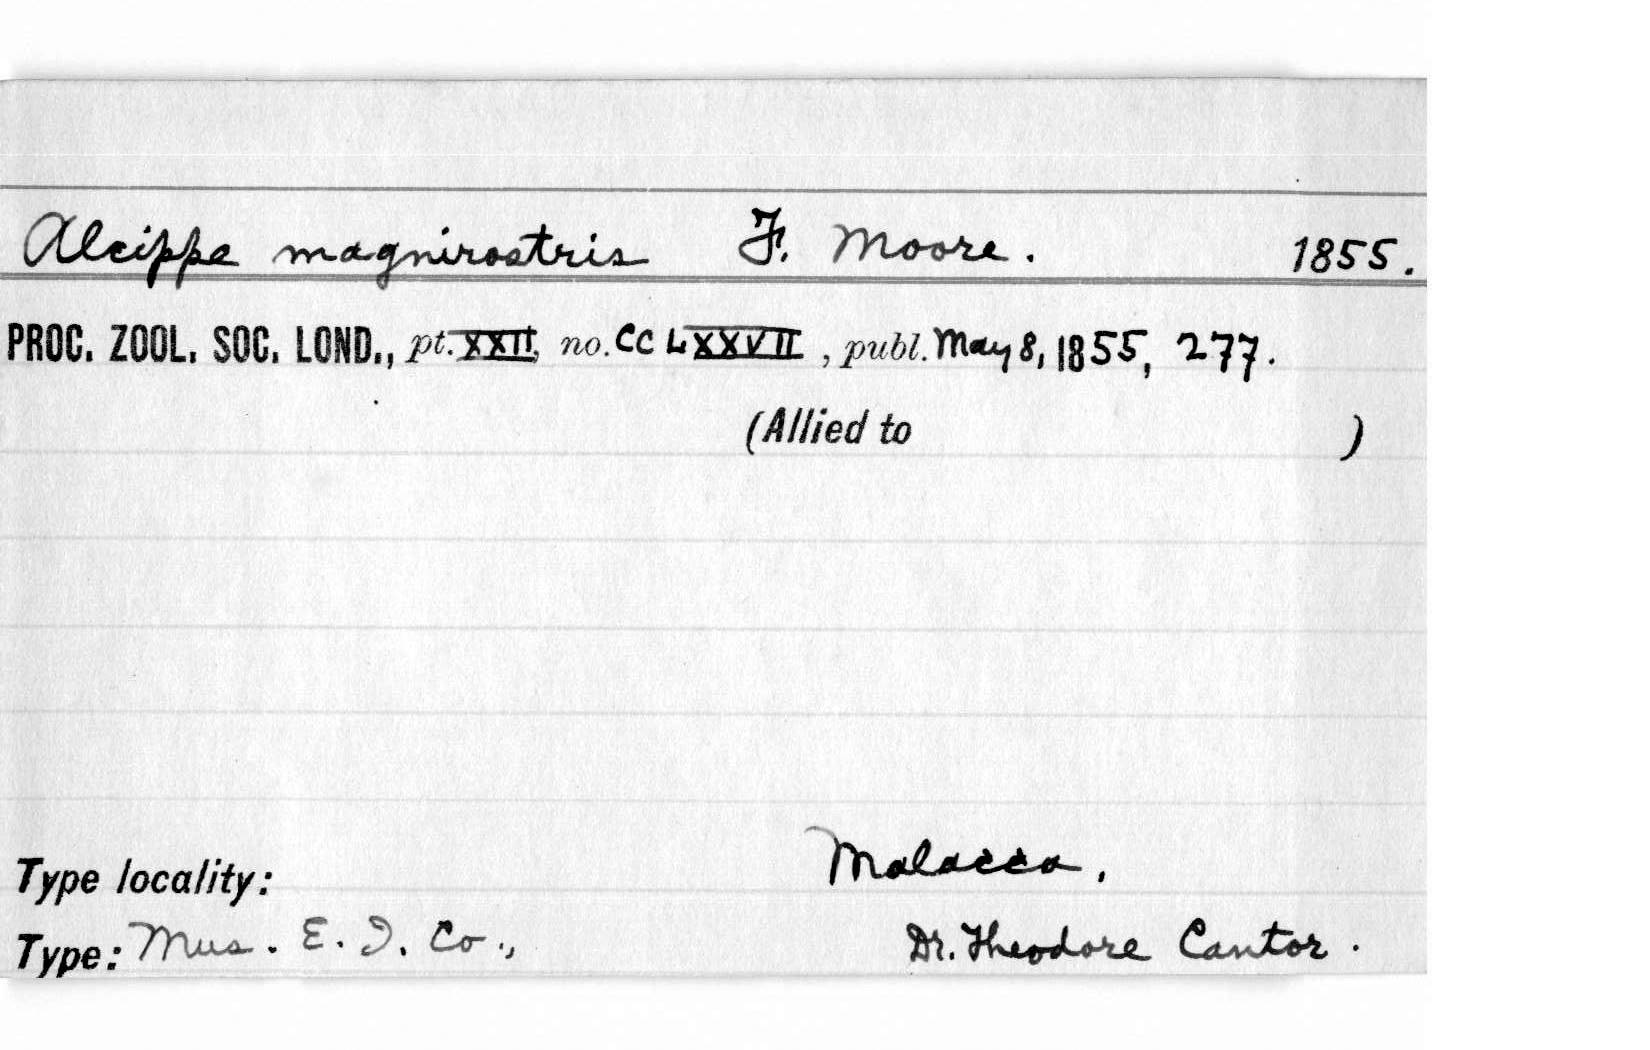 Alcippe magnirostris F. Moore. 1855.
PROC. ZOOL. SOC. LOND., pt. XXII, no. CCLXXVII, publ. May 8, 1855, 277.
(Allied to )
Malacca.
Type locality:
Type: Mus. E. I. Co., Dr. Theodore Cantor.